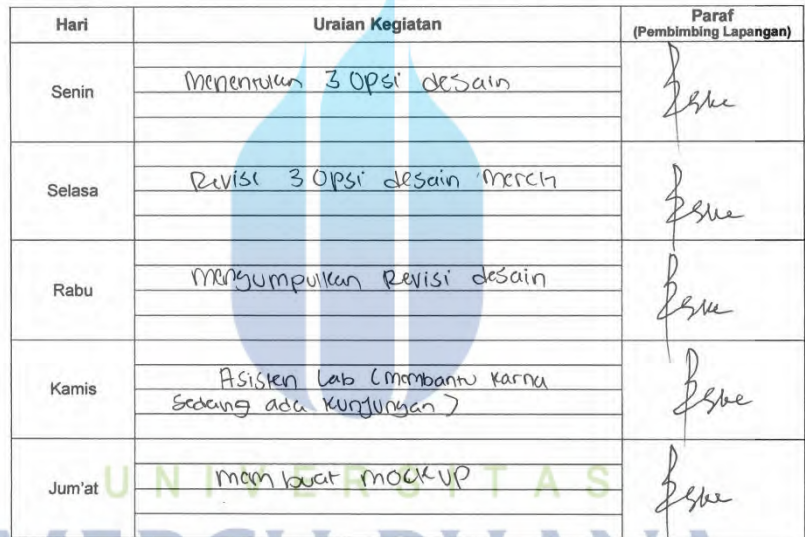 Hari Uraian Kegiatan Paraf
(Pembimbing Lapangan)
Senin Menentukan 3 Opsi desain
Selasa Revisi 3 Opsi desain Merch
Rabu Mengumpulkan Revisi desain
Kamis Asisten Lab (Membantu Karna
Sedang ada Kunjungan)
Jum'at Membuat Mockup
UNIVERSITAS